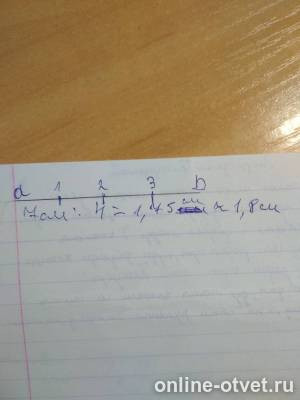 a 1 2 3 b
7см : 4 = 1,75 см ≈ 1,8см
online-otvet.ru